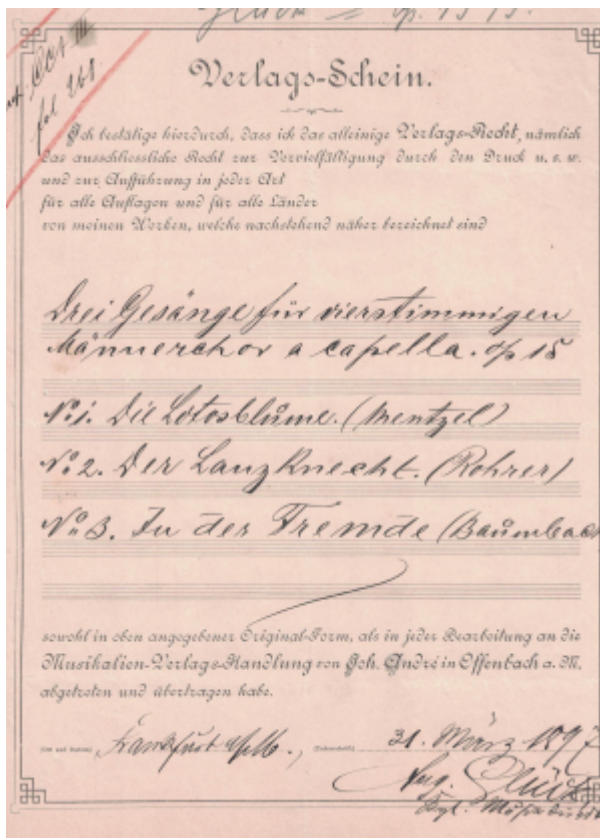 Glück op. 15
Oct III
fol 268.
Verlags-Schein.
Ich bestätige hierdurch, dass ich das alleinige Verlags-Recht, nämlich
das ausschliessliche Recht zur Vervielfältigung durch den Druck u. s. w.
und zur Aufführung in jeder Art
für alle Auflagen und für alle Länder
von meinen Werken, welche nachstehend näher bezeichnet sind
Drei Gesänge für vierstimmigen
Männerchor a capella. op 15
No 1. Die Lotosblume. (Mentzel)
No 2. Der Lanzknecht. (Rohrer)
No 3. In der Fremde (Baumbach
sowohl in oben angegebener Original-Form, als in jeder Bearbeitung an die
Musikalien-Verlags-Handlung von Joh. André in Offenbach a. M.
abgetreten und übertragen habe.
Frankfurt a/M., 31. März 1897
Aug. Glück
Kgl.